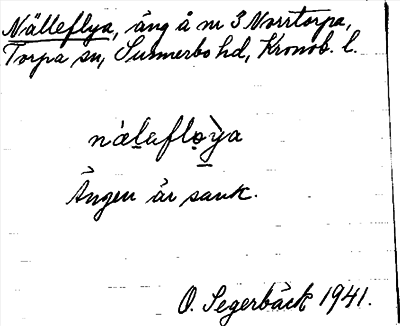 Nälleflya, äng å nr 3 Norrtorpa,
Torpa sn, Sunnerbo hd, Kronob. l.
näleflo̱ỳa
Ängen är sank.
O. Segerbäck 1941.